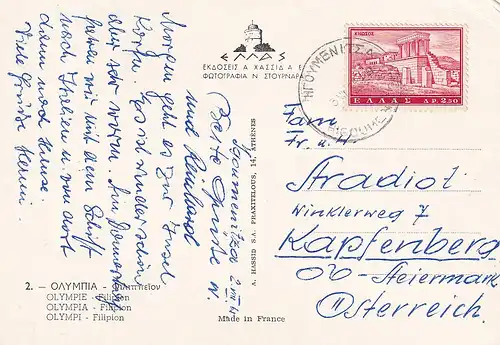 Morgen geht es zur Insel
Korfu. Es ist wunderschön
aber sehr warm. Am Donnerstag
fahren wir mit dem Schiff
nach Italien u. von dort
dann nach Hause.
Viele Grüße
Karin.
Igoumenitsa 2.VIII.61
Beste Grüße v.
und Reinhard
ΕΛΛΑΣ
ΕΚΔΟΣΕΙΣ Α ΧΑΣΣΙΔ Α Ε
ΦΩΤΟΓΡΑΦΙΑ Ν ΣΤΟΥΡΝΑΡΑ
A. HASSID S.A. PRAXITELOUS, 14, ATHÈNES
2. — ΟΛΥΜΠΙΑ - Φιλιππείον
OLYMPIE - Filipion
OLYMPIA - Filipion
OLYMPI - Filipion
Made in France
ΚΝΩΣΟΣ
ΕΛΛΑΣ ΔΡ. 2.50
ΗΓΟΥΜΕΝΙΤΣΑ
Fam.
Fr. u. H.
Stradiot
Winklerweg 7
Kapfenberg
Ob-Steiermark
Österreich.